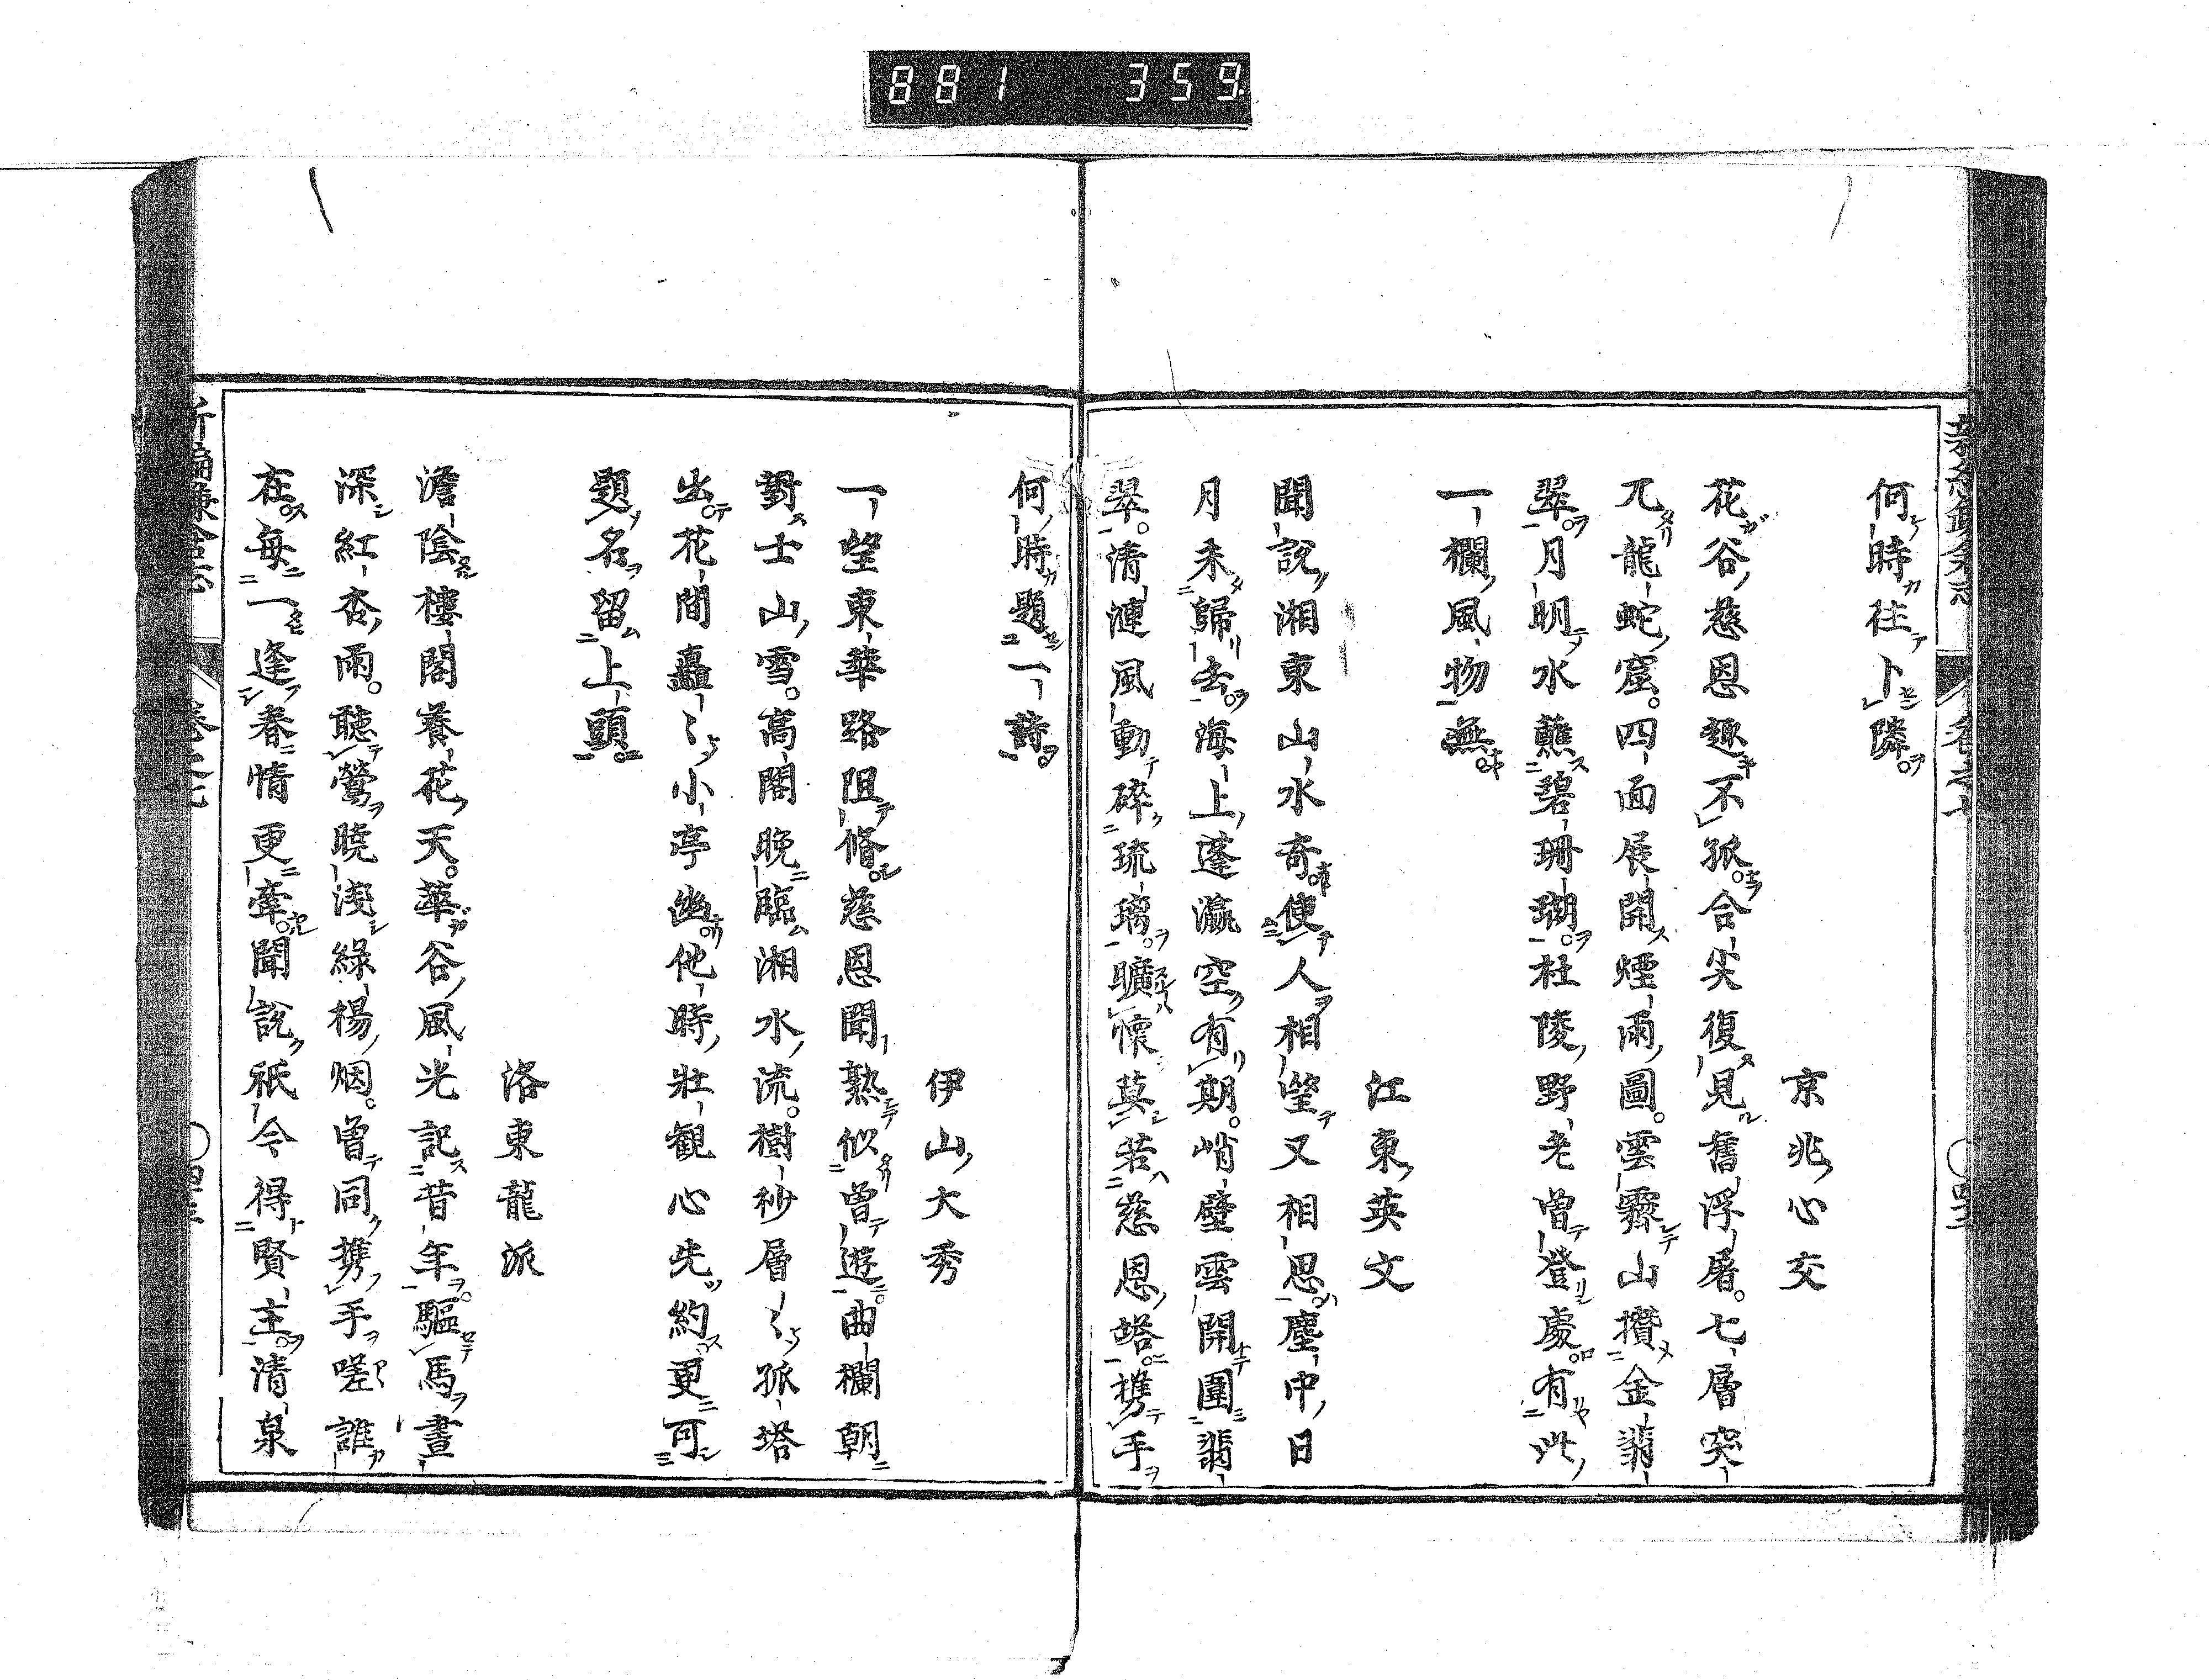 881 359
何時往卜隣
京兆心交
花谷慈恩趣不孤合尖復見舊浮屠七層突
兀龍蛇窟四面展開煙雨圖雲霽山攢金翡
翠月明水蘸碧珊瑚杜陵野老曽登處有此
一欄風物無
江東英文
聞說湘東山水奇使人相望又相思塵中日
月未歸去海上蓬瀛空有期峭壁雲開圍翡
翠清漣風動碎琉璃曠懷莫若慈恩塔携手
何時題一詩
伊山大秀
一望東華路阻脩慈恩聞熟似曽遊曲欄朝
對士山雪高閣晚臨湘水流樹杪層〻孤塔
出花間矗〻小亭幽他時壯観心先約更可
題名留上頭
洛東龍派
澹陰樓閣養花天華谷風光記昔年驅馬晝
深紅杏雨聽鶯暁淺綠楊烟曽同携手嗟誰
在每一逢春情更牽聞說祇今得賢主清泉